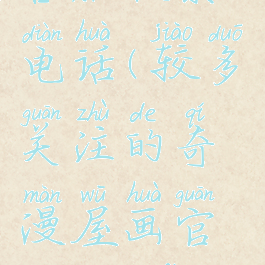 diàn huà jiào duō
电话(较多
guān zhù de qí
关注的奇
màn wū huà guān
漫屋画官